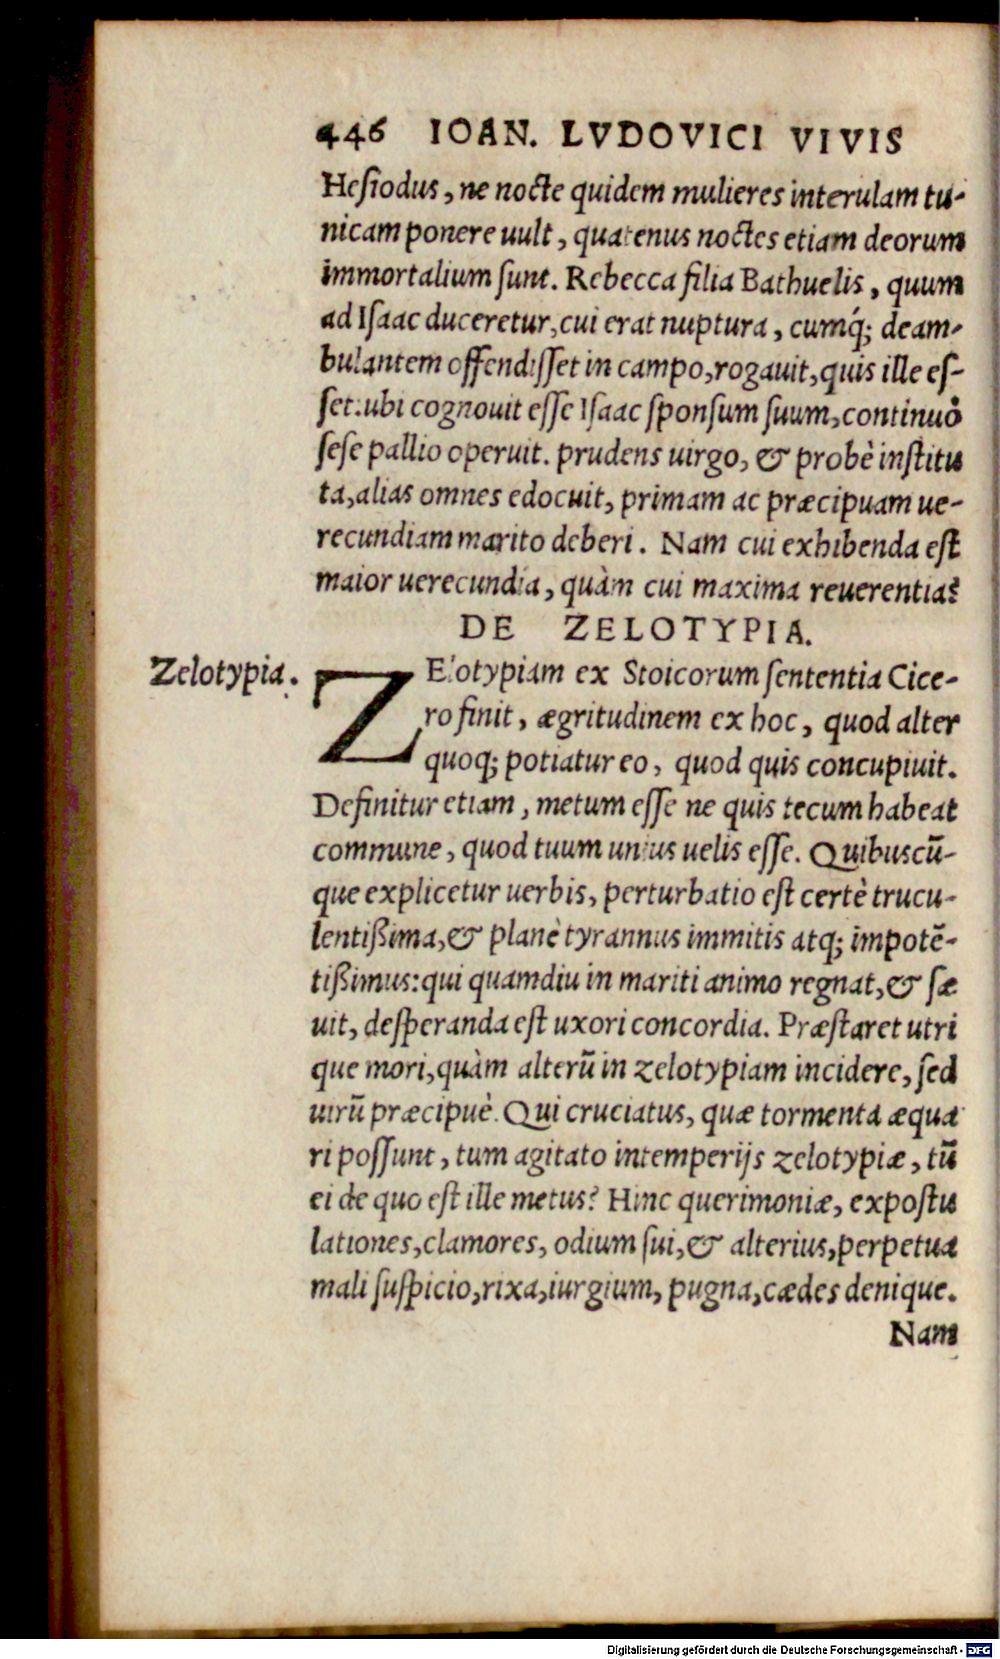 446 IOAN. LVDOVICI VIVIS
Hesiodus, ne nocte quidem mulieres interulam tu-
nicam ponere uult, quatenus noctes etiam deorum
immortalium sunt. Rebecca filia Bathuelis, quum
ad Isaac duceretur, cui erat nuptura, cumq́; deam-
bulantem offendisset in campo, rogauit, quis ille es-
set: ubi cognouit esse Isaac sponsum suum, continuò
sese pallio operuit. prudens uirgo, & probè institu
ta, alias omnes edocuit, primam ac præcipuam ue-
recundiam marito deberi. Nam cui exhibenda est
maior uerecundia, quàm cui maxima reuerentia?
DE ZELOTYPIA.
Zelotypia.
ZElotypiam ex Stoicorum sententia Cice-
ro finit, ægritudinem ex hoc, quod alter
quoq; potiatur eo, quod quis concupiuit.
Definitur etiam, metum esse ne quis tecum habeat
commune, quod tuum unius uelis esse. Quibuscū-
que explicetur uerbis, perturbatio est certè trucu-
lentißima, & planè tyrannus immitis atq; impotē-
tißimus: qui quamdiu in mariti animo regnat, & sæ
uit, desperanda est uxori concordia. Præstaret utri
que mori, quàm alterū in zelotypiam incidere, sed
uirū præcipuè. Qui cruciatus, quæ tormenta æqua
ri possunt, tum agitato intemperijs zelotypiæ, tū
ei de quo est ille metus? Hinc querimoniæ, expostu
lationes, clamores, odium sui, & alterius, perpetua
mali suspicio, rixa, iurgium, pugna, cædes denique.
Nam
Digitalisierung gefördert durch die Deutsche Forschungsgemeinschaft - DFG